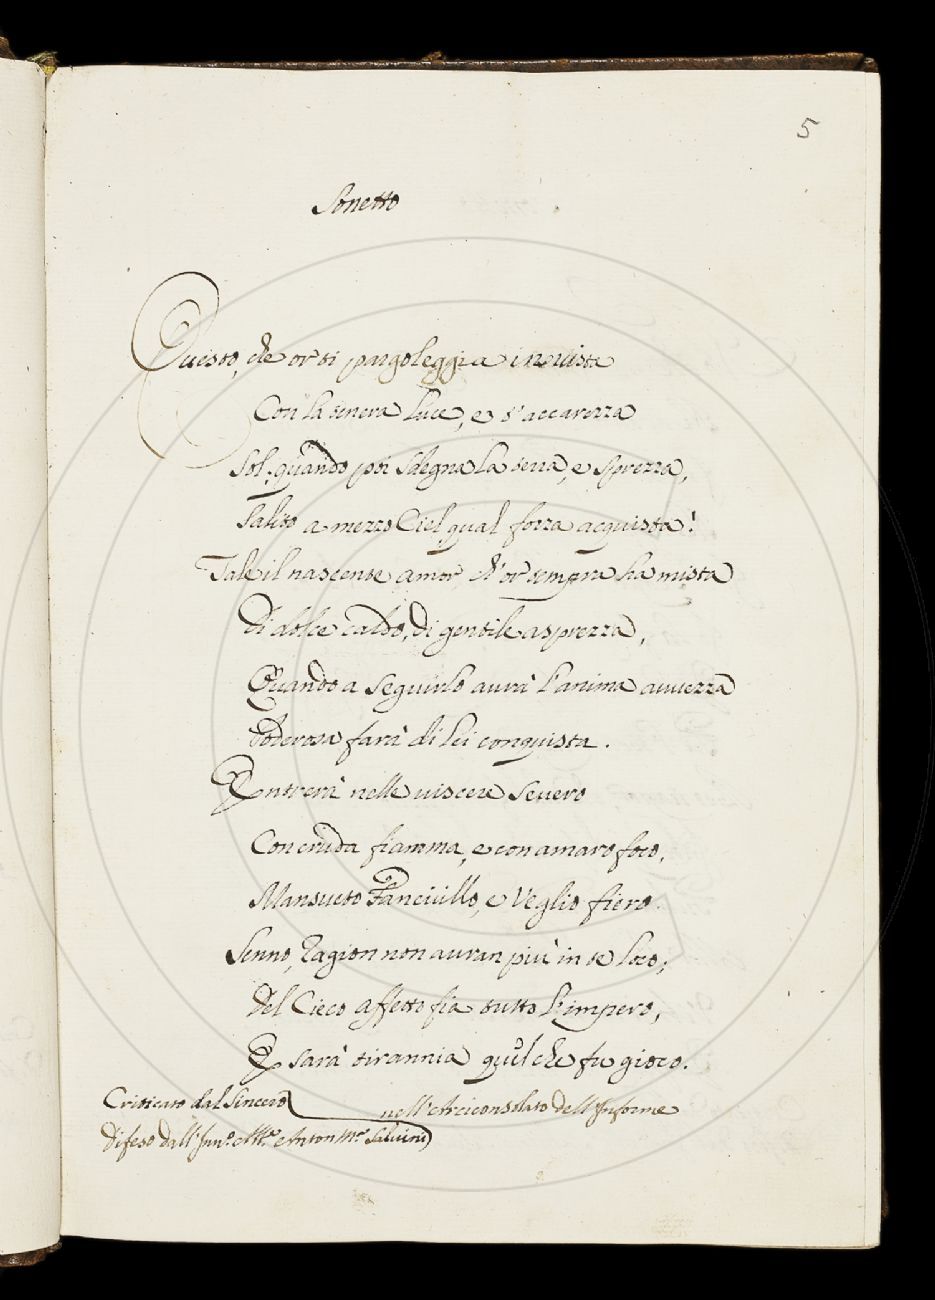 5
Sonetto
Questo, che or si pargoleggia in vista
Con la tenera luce, e s'accarezza
Sol; quando poi sdegna la terra, e sprezza,
Salito a mezzo Ciel qual forza acquista!
Tale il nascente amor ch'or tempra ha mista
Di dolce caldo, di gentile asprezza,
Quando a seguirlo aurà l'anima auuezza
Poderosa farà di lei conquista.
Entrerà nelle uiscere seuero
Con cruda fiamma, e con amaro foco,
Mansueto Fanciullo, e Veglio fiero.
Senno, Ragion non auran più in se loco;
Del Cieco affetto fia tutto l'impero,
E sarà tirannia quel che fu gioco.
Criticato dal Sincero nell'Arciconsolato dell'Informe
Difeso dall' Anton Mª Saluini